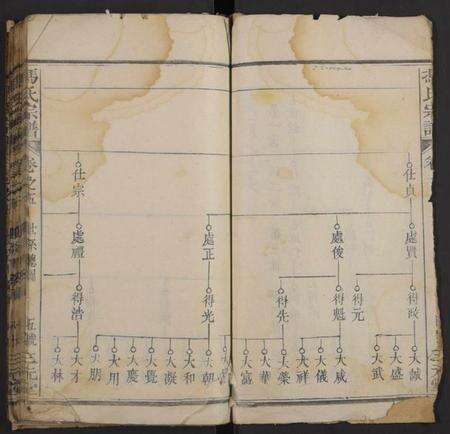 馮氏宗譜
仕貞
處賢
處俊
處正
得政
得元
得魁
得先
得光
大誠
大盛
大武
大威
大儀
大祥
大榮
大華
大富
馮氏宗譜
卷之五
仕宗
處禮
得浩
大朝
大和
大凝
大覺
大慶
大用
大朋
大才
大林